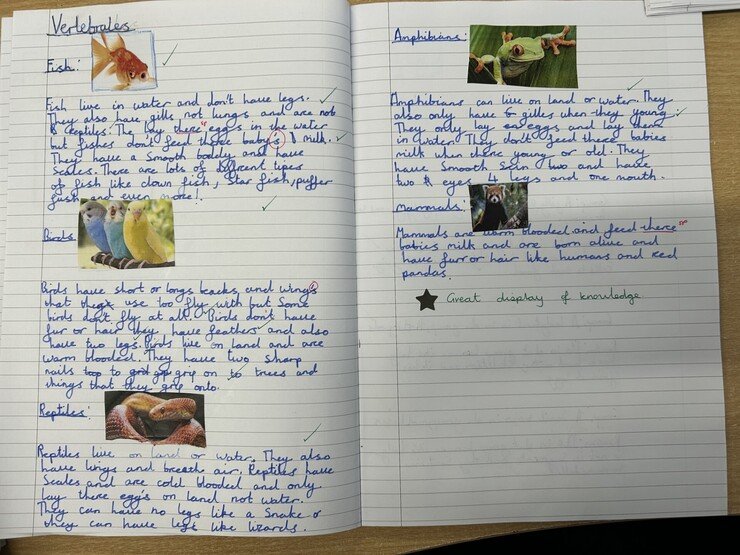 Vertebrates
Fish:
Fish live in water and don't have legs.
They also have gills not lungs and are not
reptiles. The lay there egg's in the water
but fishes don't feed there baby's milk.
They have a smooth boddy and have
Scales. There are lots of different tipes
of fish like clown fish, Star fish, puffer
fish and even more!.
Birds
Birds have short or longs beacks and wings
that use too fly with but Some
birds don't fly at all. Birds don't have
fur or hair they have feathers and also
have two legs. Birds live on land and are
warm blooded. They have two sharp
nails to grip on to trees and
things that they grip onto.
Reptiles:
Reptiles live on land or water. They also
have lungs and breath air. Reptiles have
Scales and are cold blooded and only
lay there egg's on land not water.
They can have no legs like a Snake or
they can have legs like lizards.
Amphibians:
Amphibians can live on land or water. They
also only have gilles when they young.
They only lay eggs and lay them
in water. They don't feed there babies
milk when there young or old. They
have Smooth Skin two and have
two eyes 4 legs and one mouth.
Mammals:
Mammals are warm blooded and feed there
babies milk and are born alive and
have furr or hair like humans and red
pandas.
Great display of knowledge